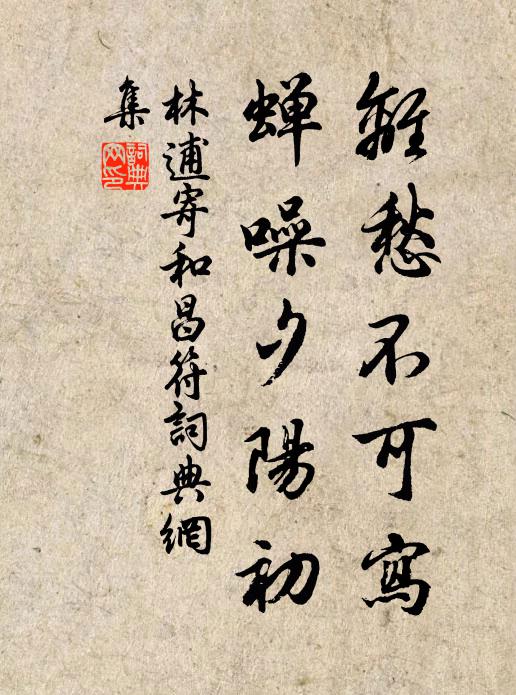 離愁不可寫
蟬噪夕陽初
林逋寄和昌符詞典網
集
詞典網印